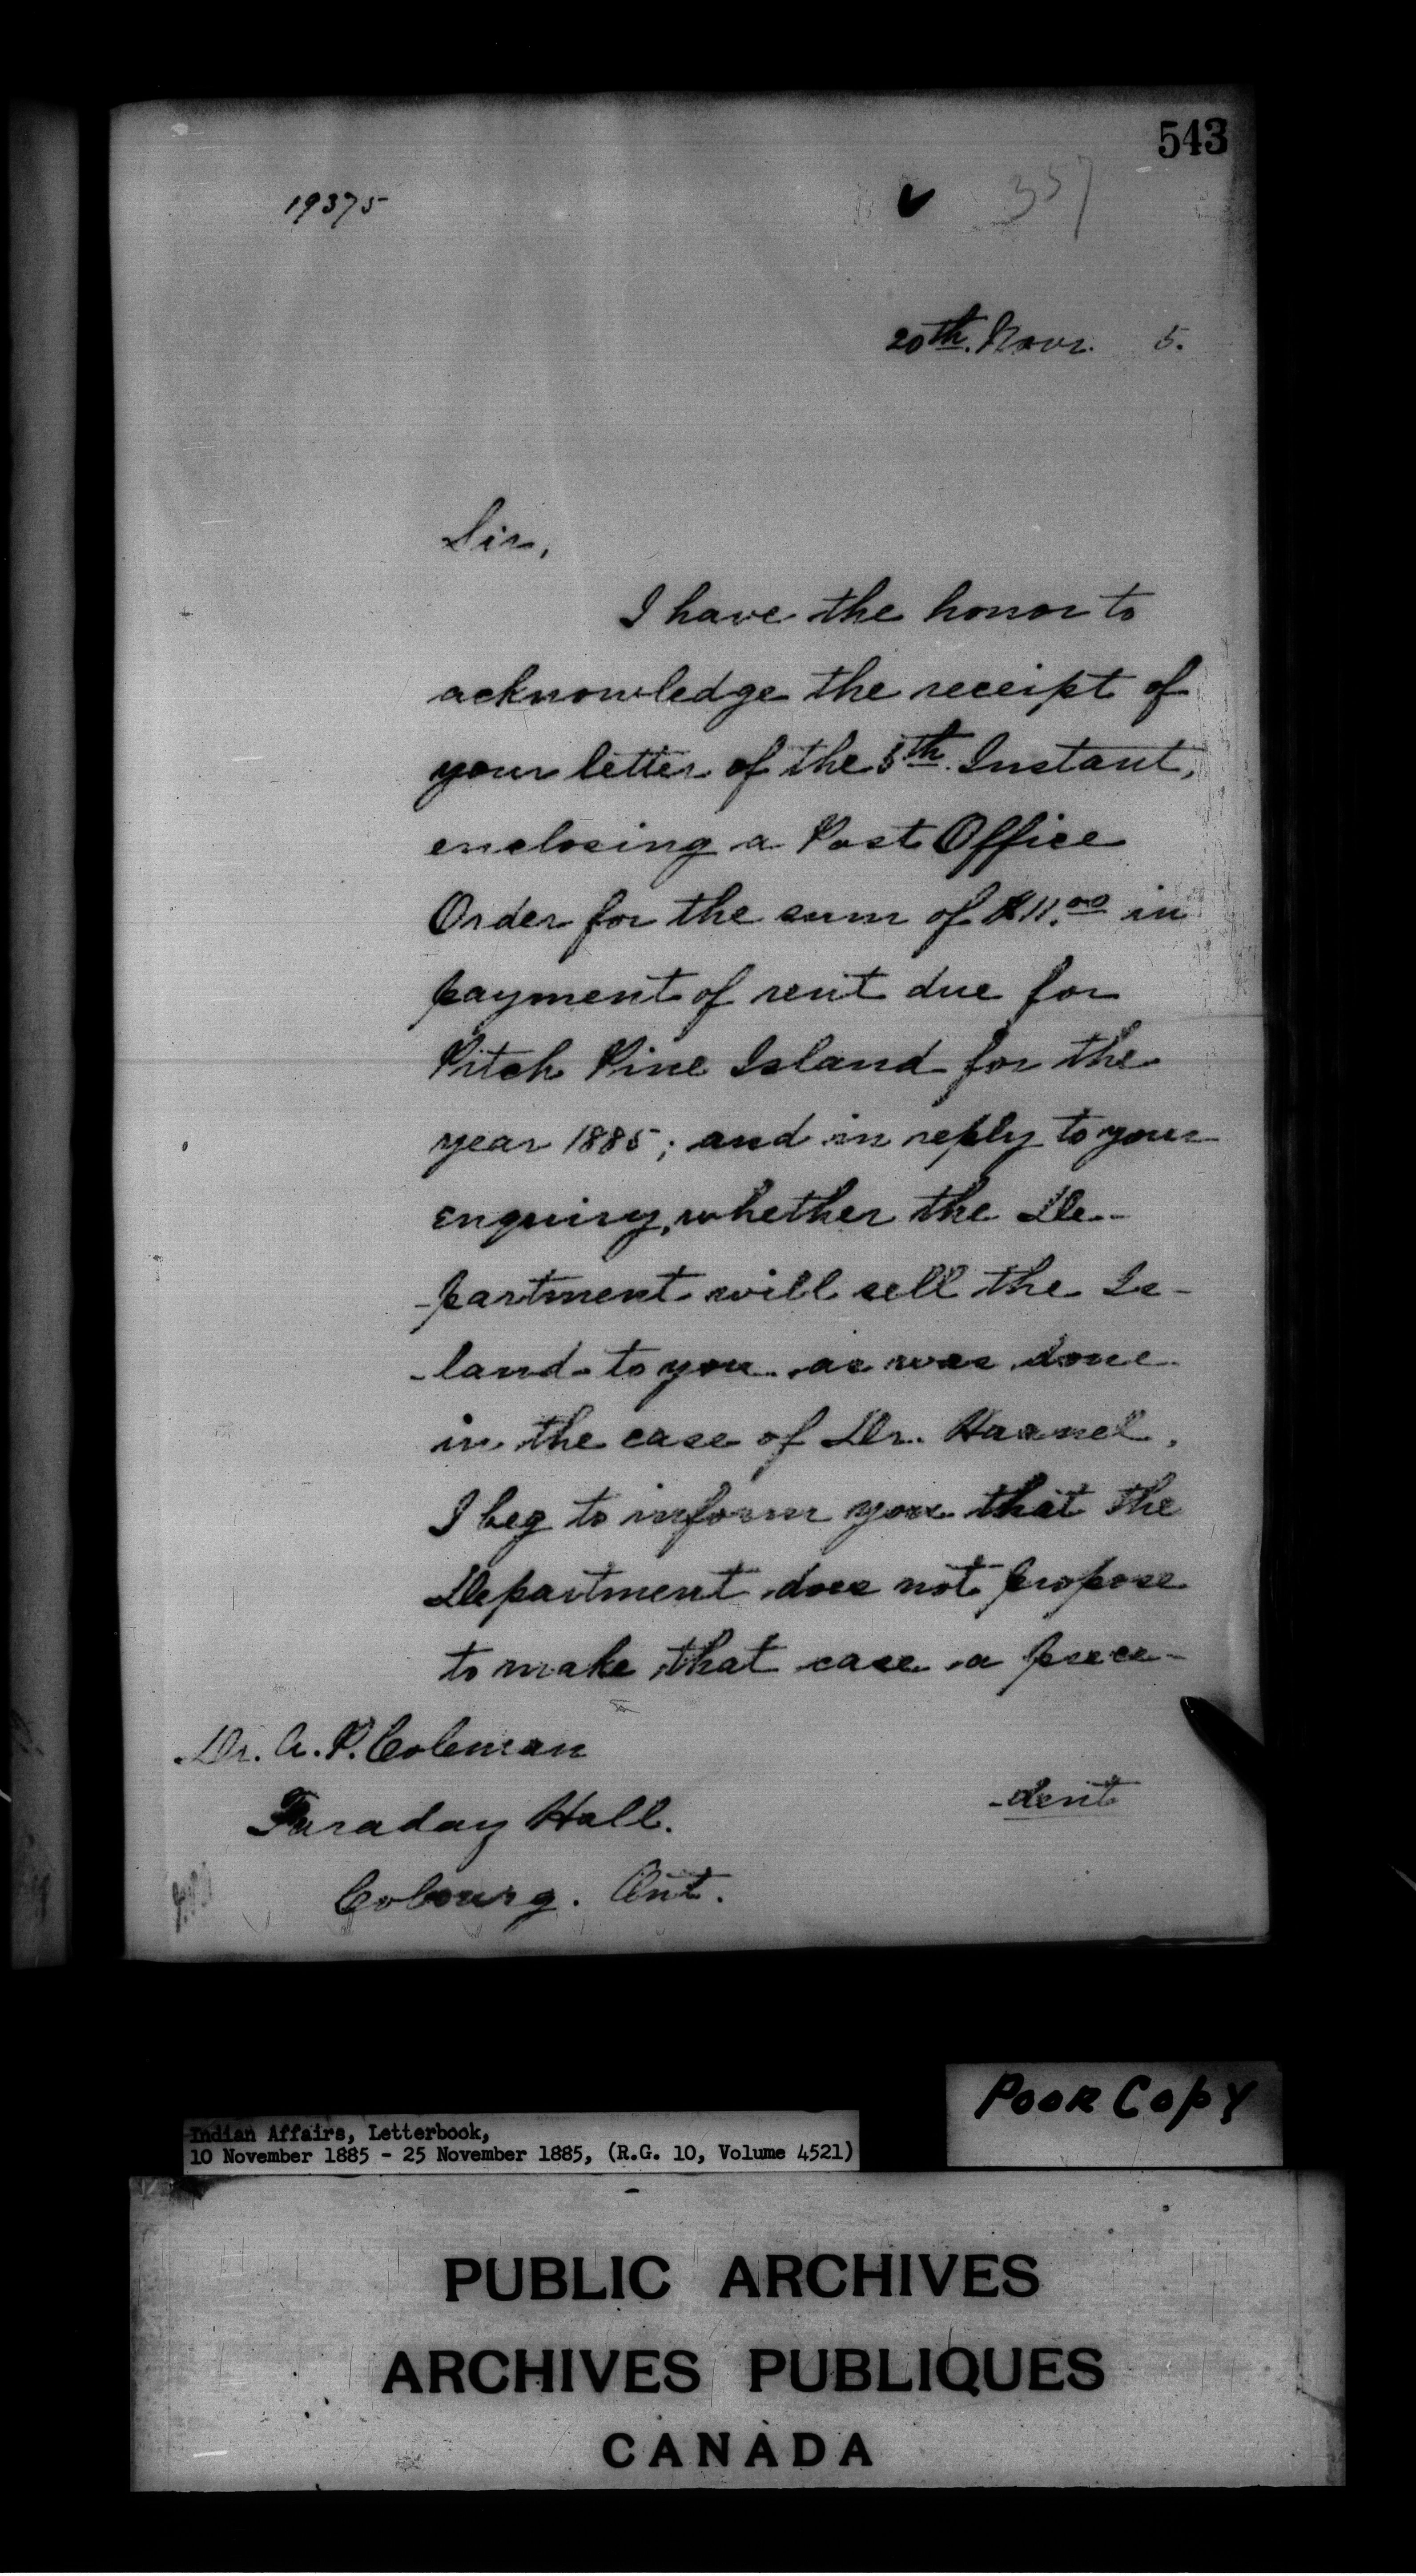 543
19375
357
20th. Novr. 5.
Sir,
I have the honor to
acknowledge the receipt of
your letter of the 5th. Instant,
enclosing a Post Office
Order for the sum of $11.00 in
payment of rent due for
Pitch Pine Island for the
year 1885; and in reply to your
enquiry, whether the De-
-partment will sell the Is-
-land to you as was done
in the case of Dr. Haanel,
I beg to inform you that the
Department does not propose
to make that case a prece-
-dent
Dr. A. P. Coleman
Faraday Hall.
Cobourg. Ont.
Poor Copy
Indian Affairs, Letterbook,
10 November 1885 - 25 November 1885, (R.G. 10, Volume 4521)
PUBLIC ARCHIVES
ARCHIVES PUBLIQUES
CANADA